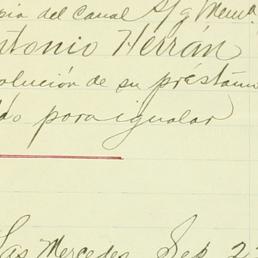 pia del Canal S/g Mem/a
Antonio Herrán
olución de su préstam
do para igualar
Las Mercedes Sep 2